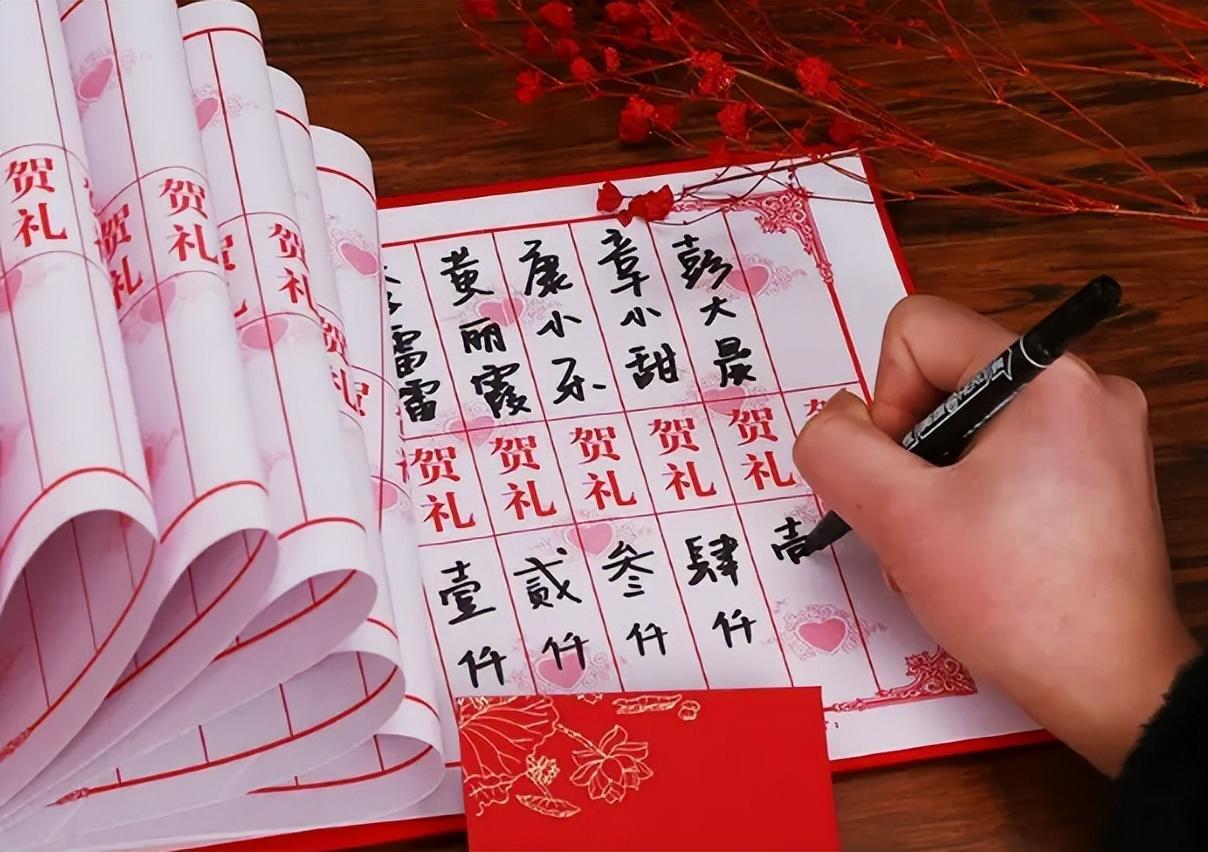 贺礼
贺礼
贺礼
贺礼
贺礼
雷雷 贺礼 壹仟
黄丽霞 贺礼 贰仟
康小乐 贺礼 叁仟
章小甜 贺礼 肆仟
彭大晨 贺礼 壹